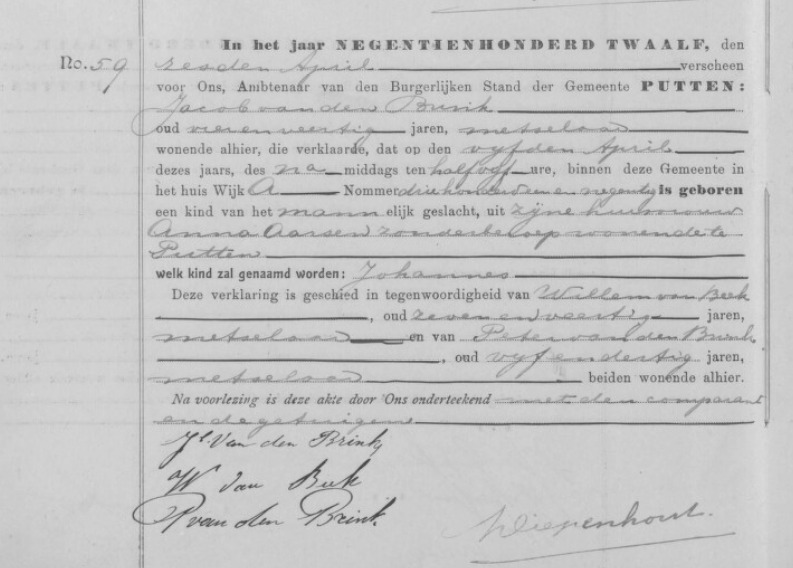 In het jaar NEGENTIENHONDERD TWAALF, den
No. 59 zesden April verscheen
voor Ons, Ambtenaar van den Burgerlijken Stand der Gemeente PUTTEN:
Jacob van den Brink
oud vier en veertig jaren, metselaar
wonende alhier, die verklaarde, dat op den vijfden April
dezes jaars, des na middags ten half vijf ure, binnen deze Gemeente in
het huis Wijk A Nommer driehonderd een en negentig is geboren
een kind van het mann elijk geslacht, uit zijne huisvrouw
Anna Aarsen zonder beroep wonende te
Putten
welk kind zal genaamd worden: Johannes
Deze verklaring is geschied in tegenwoordigheid van Willem van Beek
, oud zeven en veertig jaren,
metselaar en van Peter van den Brink
, oud vijf en dertig jaren,
metselaar beiden wonende alhier.
Na voorlezing is deze akte door Ons onderteekend met den comparant
en de getuigen
Jb. Van den Brink
W van Beek
P van den Brink.
Diepenhorst.